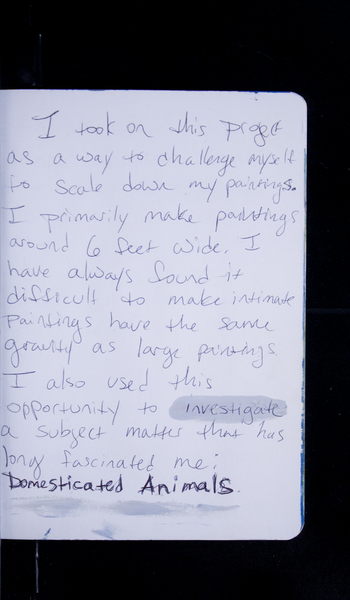 I took on this project
as a way to challenge myself
to scale down my paintings.
I primarily make paintings
around 6 feet wide. I
have always found it
difficult to make intimate
paintings have the same
gravity as large paintings.
I also used this
opportunity to investigate
a subject matter that has
long fascinated me:
Domesticated Animals.